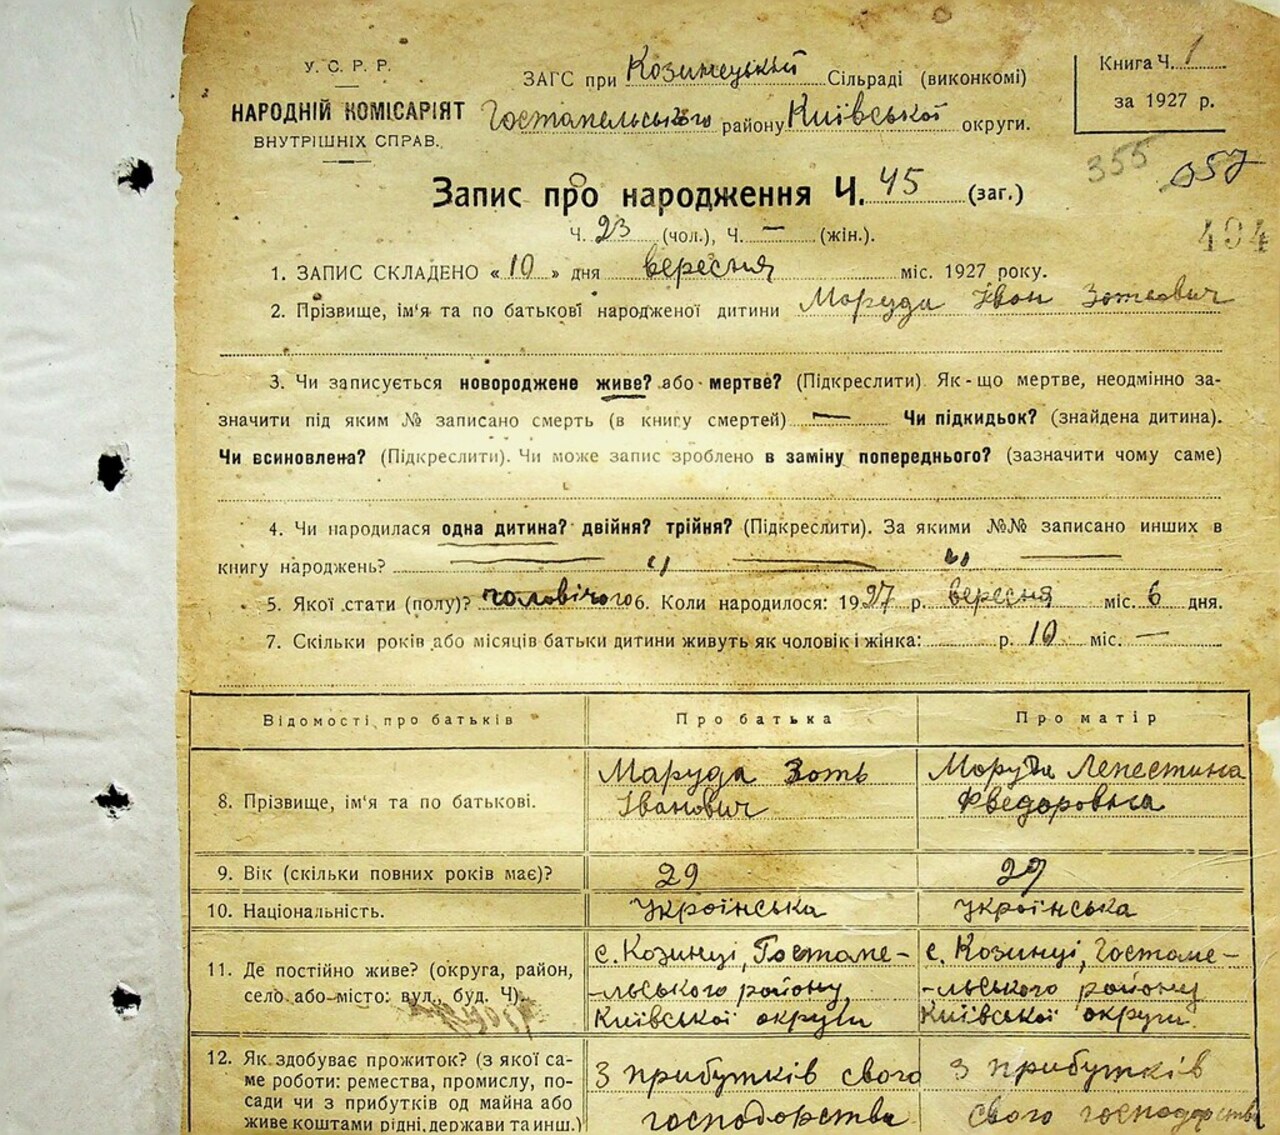 У. С. Р. Р.
НАРОДНІЙ КОМІСАРІЯТ
ВНУТРІШНІХ СПРАВ.
ЗАГС при Козинецькій Сільраді (виконкомі)
Гостомельського району Київської округи.
Книга Ч. 1
за 1927 р.
355 357
404
Запис про народження Ч. 45 (заг.)
Ч. 23 (чол.), Ч. — (жін.).
1. ЗАПИС СКЛАДЕНО «10» дня вересня міс. 1927 року.
2. Прізвище, ім'я та по батькові народженої дитини Моруда Іван Зотьович
3. Чи записується новороджене живе? або мертве? (Підкреслити). Як-що мертве, неодмінно за-
значити під яким № записано смерть (в книгу смертей) — Чи підкидьок? (знайдена дитина).
Чи всиновлена? (Підкреслити). Чи може запис зроблено в заміну попереднього? (зазначити чому саме)
4. Чи народилася одна дитина? двійня? трійня? (Підкреслити). За якими №№ записано инших в
книгу народжень? — „ — „ —
5. Якої стати (полу)? чоловічого 6. Коли народилося: 1927 р. вересня міс. 6 дня.
7. Скільки років або місяців батьки дитини живуть як чоловік і жінка: р. 10 міс. —
Відомості про батьків Про батька Про матір
8. Прізвище, ім'я та по батькові. Маруда Зоть Іванович Моруда Лепестина Фведоровна
9. Вік (скільки повних років має)? 29 29
10. Національність. Українська Українська
11. Де постійно живе? (округа, район,
село або місто: вул., буд. Ч).
с. Козинці, Гостоме-
-льського району
Київської округи
с. Козинці, Гостоме-
-льського району
Київської округи
12. Як здобуває прожиток? (з якої са-
ме роботи: ремества, промислу, по-
сади чи з прибутків од майна або
живе коштами рідні, держави та инш.)
З прибутків свого
господорства
З прибутків
свого господорства